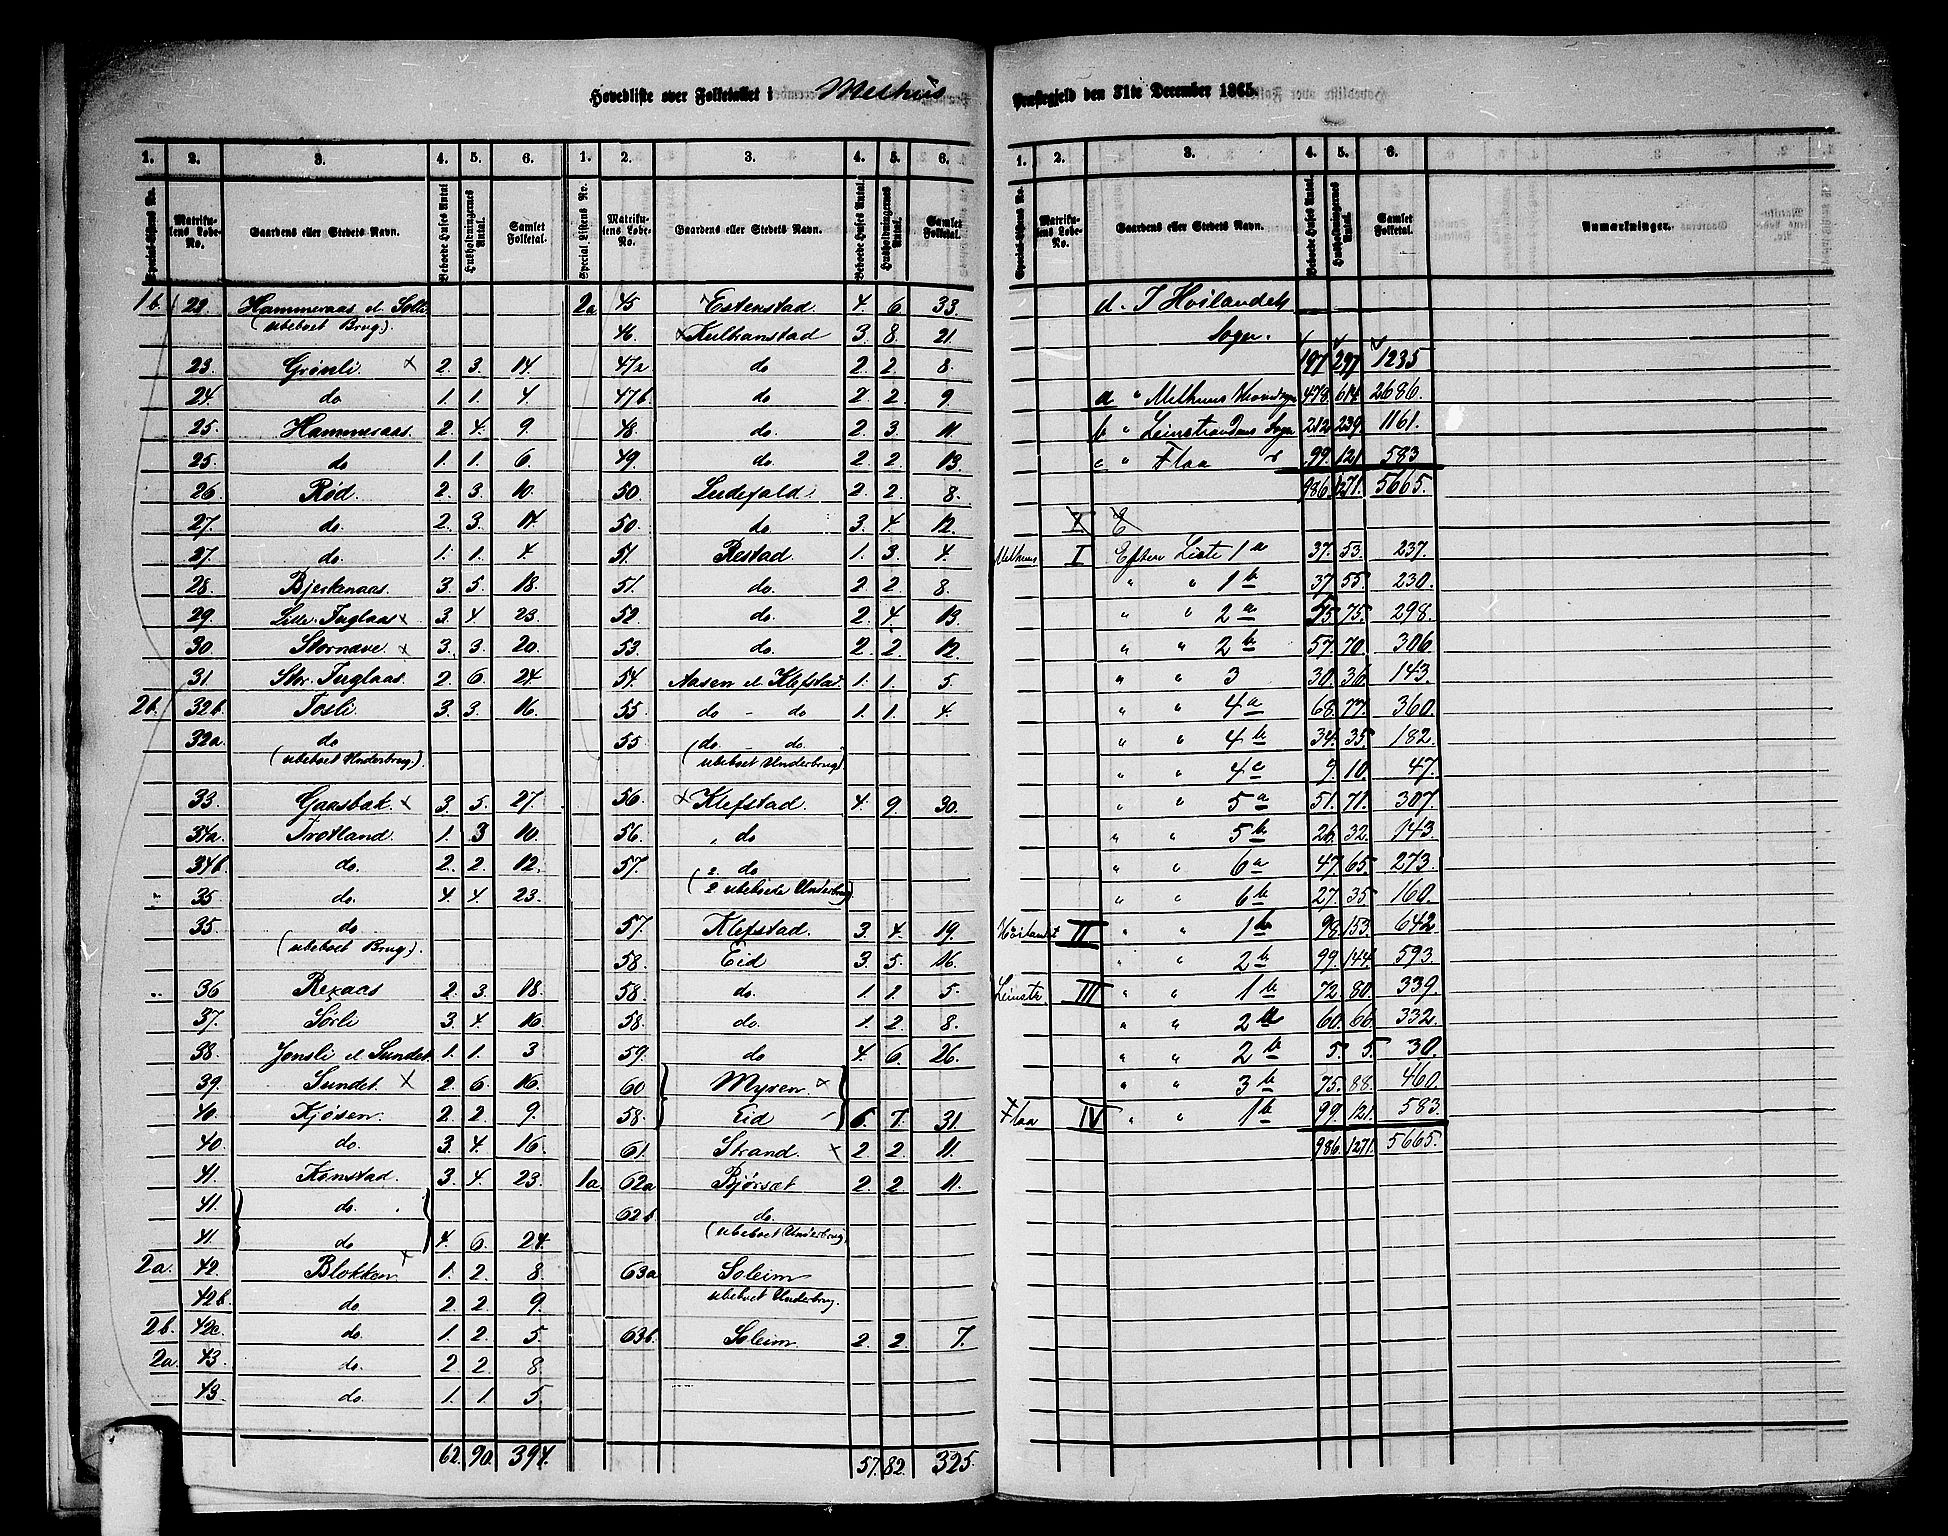 Hovedliste over Folketallet i Melhus
1. 2. 3. 4. 5. 6. 1. 2. 3. 4. 5. 6.
Special-Listens No. Matrikulens Løbe-No. Gaardens eller Stedets Navn. Beboede Huses Antal Husholdningernes Antal. Samlet Folketal. Special Listens No. Matrikulens Løbe-No. Gaardens eller Stedets Navn. Beboede Huses Antal. Husholdningernes Antal. Samlet Folketal.
1b 22. Hammeraas el. Solli
(ubeboet Brug).
23. Grønli. x 2. 3. 14
24. do 1. 1. 4.
25. Hammeraas. 2. 4. 9.
25. do 1. 1. 6.
26. Rød. 2. 3. 10.
27. do. 2. 3. 14.
27. do. 1. 1. 4.
28. Bjerkenaas. 3. 5. 18.
29. Lille-Fuglaas x 3. 4. 23.
30. Stornæve. x 3. 3. 20.
31. Stor. Fuglaas. 2. 6. 24.
2b. 32b. Fosli. 3. 3. 16.
32a. do
(ubeboet Underbrug).
33. Gaasbak x 3. 5. 27.
34a. Trotland. 1. 3 10.
34b. do. 2. 2. 12.
35. do. 4. 4. 23.
35. do
(ubeboet Brug).
36 Rexaas 2. 3. 18.
37. Sørli 3. 4. 16.
38. Jonsli el Sundet. 1. 1. 3
39. Sundet. x 2. 6. 16.
40. Kjøsen. 2. 2. 9.
40. do. 3. 4. 16.
41. Kønstad. 3. 4. 23.
41. do.
41. do 4. 6. 24.
2a. 42. Blokken x 1. 2. 8.
42b. do 2. 2. 9.
2b. 42c. do. 1. 2. 5.
2a 43. do. 2. 2. 8
43. do. 1. 1. 5.
62. 90. 394.
2a 45 Estenstad. 4. 6 33.
46. x Kulhanstad 3. 8. 21.
47a do 2. 2. 8.
47b. do 2. 2. 9.
48. do. 2. 3. 11.
49. do 2. 2. 13.
50. Ludefald. 2. 2. 8.
50. do 3. 4. 12.
51. Restad. 1. 3. 4.
51. do. 2. 2. 8.
52. do. 2. 4. 13.
53. do. 2. 2. 12.
54. Aasen el Klefstad. 1. 1. 5.
55. do - do 1. 1. 4.
55. do - do.
(ubeboet Underbrug)
56. x Klefstad. 4. 9. 30.
56. do
57. 2. do
(2 ubeboede Underbrug)
57. Klefstad. 3. 4. 19.
58. Eid 3. 5. 16.
58. do. 1. 1. 5.
58. do. 1. 2. 8.
59. do 4. 6. 26.
60 Myren x
58. Eid 6. 7. 31.
61. Strand. x 2. 2. 11.
1a 62a Bjørset 2. 2. 11.
62b. do.
(ubeboet Underbrug)
63a Soleim
ubeboet Underbrug.
63b. Soleim. 2. 2. 7.
57. 82. 325.
Præstegjeld den 31te December 1865.
1. 2. 3. 4. 5. 6.
Special-Listens No. Matrikulens Løbe-No. Gaardens eller Stedets Navn. Beboede Huses Antal. Husholdningernes Antal. Samlet Folketal. Anmærkninger.
d. I Høilandets
Sogn. 197 297 1235
a " Melhuus Hovedsogn 478. 614. 2686.
b " Leinstrandens Sogn 212. 239. 1161.
c " Flaa 99. 121 583
986. 1271. 5665.
I E
Melhuus I Efter Liste 1a 37. 53. 237.
" " 1b 37. 55. 230.
" " 2a 55. 75. 298.
" " 2b 57. 70. 306
" " 3 30. 36. 143.
" " 4a 68. 77. 360.
" " 4b 34. 35. 182.
" " 4c 9. 10. 47.
" " 5a 51. 71. 307.
" " 5b 26. 32. 143.
" " 6a 47. 65. 273.
" " 6b 27. 35. 160.
Høilandet II " " 1b 98. 153. 642.
" " 2b 99. 144. 593.
Leinstr. III " " 1b 72. 80. 339.
" " 2a 60. 66. 332.
" " 2b 5. 5. 30.
" " 3b 75. 88. 460.
Flaa IV " " 1b 99. 121. 583.
986. 1271. 5665.